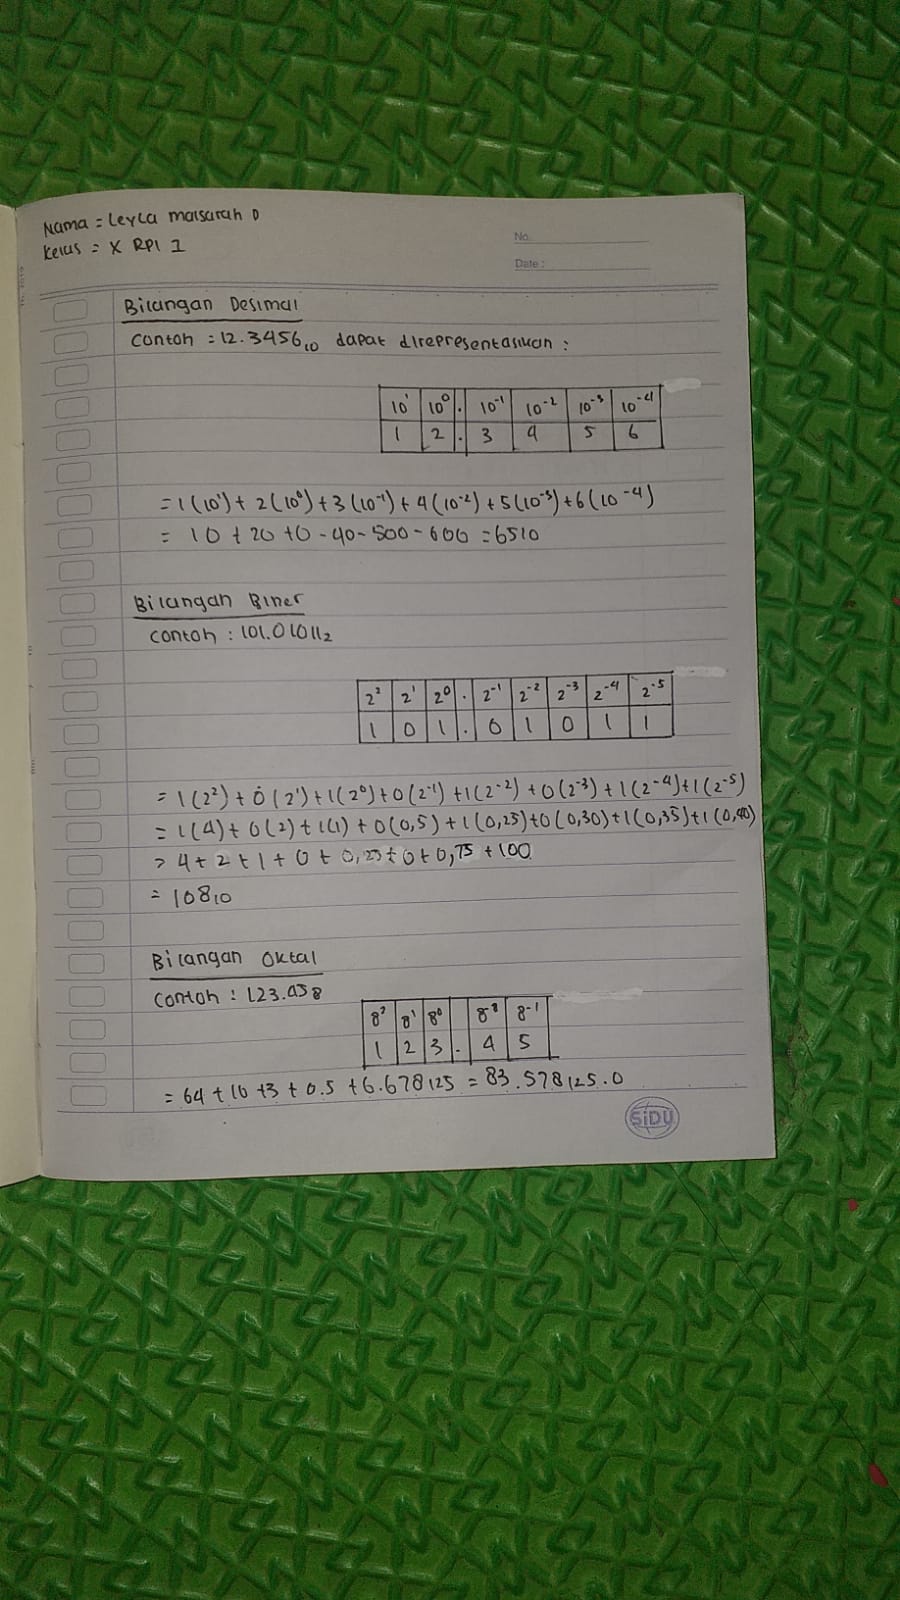 Nama = Leyla maisarah D
Kelas = X RPl 1
No.
Date :
Bilangan Desimal
Contoh = 12.3456₁₀ dapat direpresentasikan :
10¹ 10⁰ . 10⁻¹ 10⁻² 10⁻³ 10⁻⁴
1 2 . 3 4 5 6
= 1(10¹) + 2(10⁰) + 3(10⁻¹) + 4(10⁻²) + 5(10⁻³) + 6(10⁻⁴)
= 10 + 20 + 0 - 40 - 500 - 600 = 6510
Bilangan Biner
Contoh : 101.01011₂
2² 2¹ 2⁰ . 2⁻¹ 2⁻² 2⁻³ 2⁻⁴ 2⁻⁵
1 0 1 . 0 1 0 1 1
= 1(2²) + 0(2¹) + 1(2⁰) + 0(2⁻¹) + 1(2⁻²) + 0(2⁻³) + 1(2⁻⁴) + 1(2⁻⁵)
= 1(4) + 0(2) + 1(1) + 0(0,5) + 1(0,25) + 0(0,30) + 1(0,35) + 1(0,40)
= 4 + 2 + 1 + 0 + 0,25 + 0 + 0,75 + 100
= 108₁₀
Bilangan Oktal
Contoh : 123.45₈
8² 8¹ 8⁰ 8⁻¹
1 2 3 . 4 5
= 64 + 16 + 3 + 0.5 + 6.678125 = 83.578125.0
SiDU